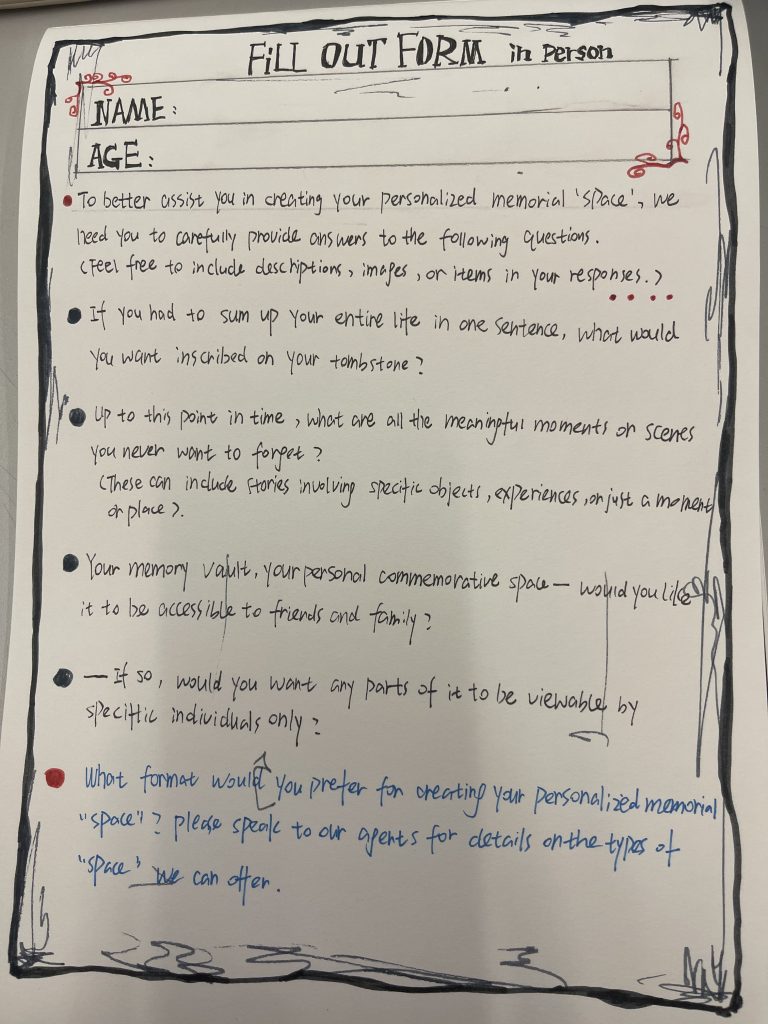 FiLL OUT FORM in Person
NAME:
AGE:
To better assist you in creating your personalized memorial 'space', we
need you to carefully provide answers to the following questions.
(Feel free to include descriptions, images, or items in your responses.)
If you had to sum up your entire life in one sentence, what would
you want inscribed on your tombstone?
Up to this point in time, what are all the meaningful moments or scenes
you never want to forget?
(These can include stories involving specific objects, experiences, or just a moment
or place).
Your memory vault, your personal commemorative space — would you like
it to be accessible to friends and family?
— If so, would you want any parts of it to be viewable by
speciftic individuals only?
What format would you prefer for creating your personalized memorial
"space"? please speak to our agents for details on the types of
"space" we can offer.